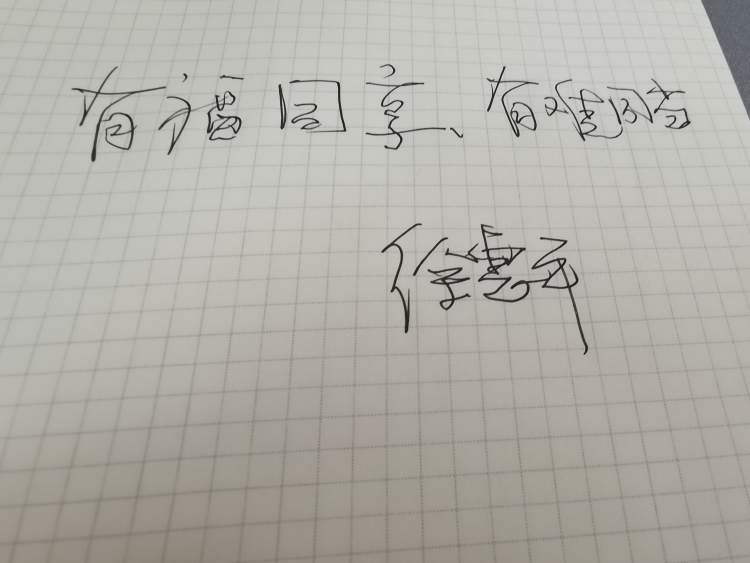 有福同享、有难同当
徐惠平